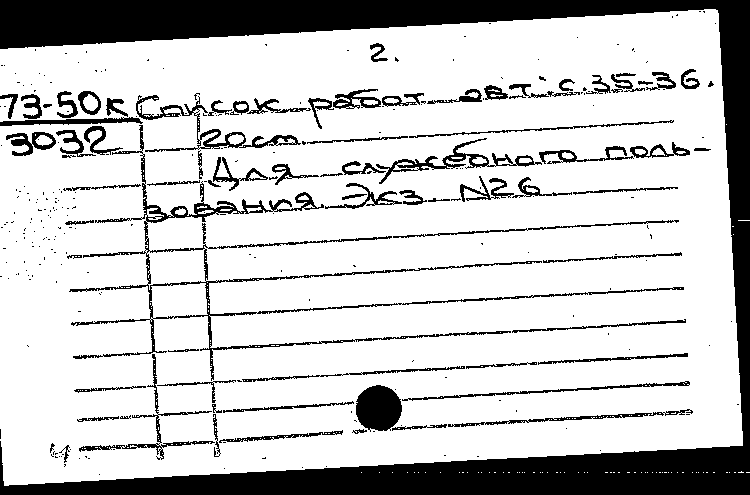 2.
73-50к Список работ авт: с. 35-36.
3032 20 cm.
Для служебного поль-
зования. Экз. N26
4